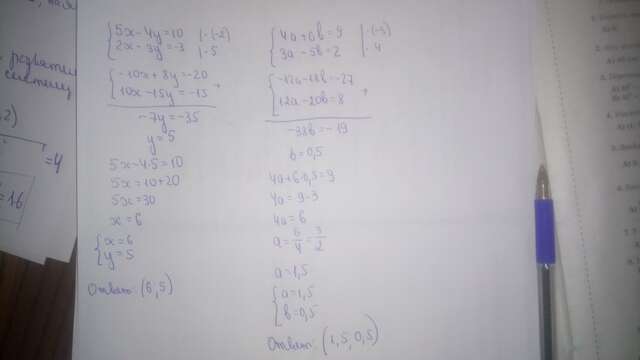 5x-4y=10 | ·(-2)
2x-3y=-3 | ·5
-10x+8y=-20
10x-15y=-15 +
-7y=-35
y=5
5x-4·5=10
5x=10+20
5x=30
x=6
x=6
y=5
Ответ: (6,5)
4a+6b=9 | ·(-3)
3a-5b=2 | ·4
-12a-18b=-27
12a-20b=8 +
-38b=-19
b=0,5
4a+6·0,5=9
4a=9-3
4a=6
a=6/4=3/2
a=1,5
a=1,5
b=0,5
Ответ: (1,5, 0,5)
=4
=16